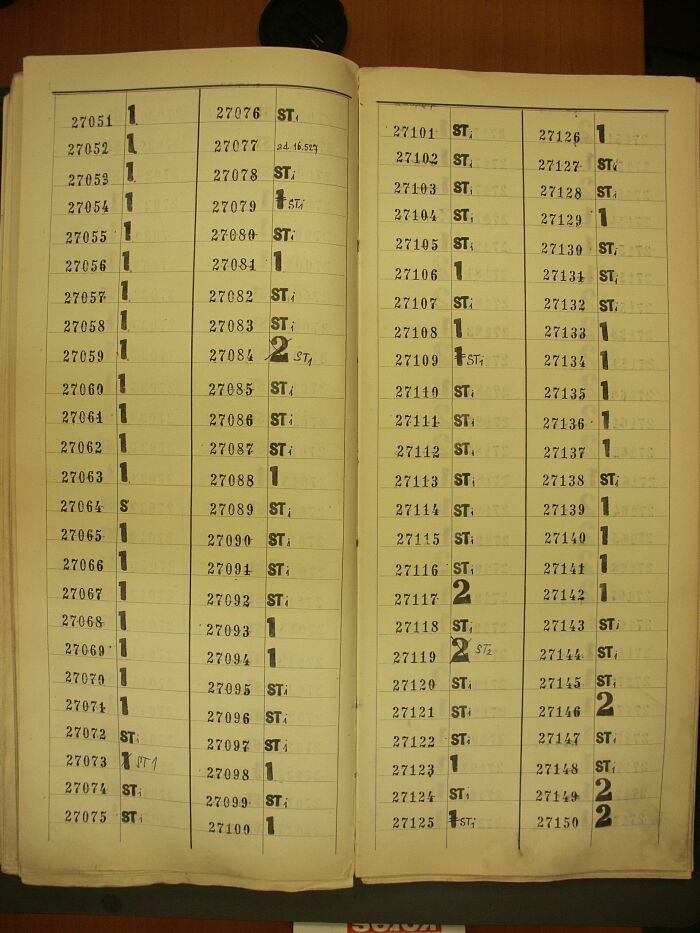 27051 1
27052 1
27053 1
27054 1
27055 1
27056 1
27057 1
27058 1
27059 1
27060 1
27061 1
27062 1
27063 1
27064 S
27065 1
27066 1
27067 1
27068 1
27069 1
27070 1
27071 1
27072 ST1
27073 1 ST1
27074 ST1
27075 ST1
27076 ST1
27077 ad 16.527
27078 ST1
27079 1 ST1
27080 ST1
27081 1
27082 ST1
27083 ST1
27084 2 ST1
27085 ST1
27086 ST1
27087 ST1
27088 1
27089 ST1
27090 ST1
27091 ST1
27092 ST1
27093 1
27094 1
27095 ST1
27096 ST1
27097 ST1
27098 1
27099 ST1
27100 1
27101 ST1
27102 ST1
27103 ST1
27104 ST1
27105 ST1
27106 1
27107 ST1
27108 1
27109 1 ST1
27110 ST1
27111 ST1
27112 ST1
27113 ST1
27114 ST1
27115 ST1
27116 ST1
27117 2
27118 ST1
27119 2 ST2
27120 ST1
27121 ST1
27122 ST1
27123 1
27124 ST1
27125 1 ST1
27126 1
27127 ST1
27128 ST1
27129 1
27130 ST1
27131 ST1
27132 ST1
27133 1
27134 1
27135 1
27136 1
27137 1
27138 ST1
27139 1
27140 1
27141 1
27142 1
27143 ST1
27144 ST1
27145 ST1
27146 2
27147 ST1
27148 ST1
27149 2
27150 2